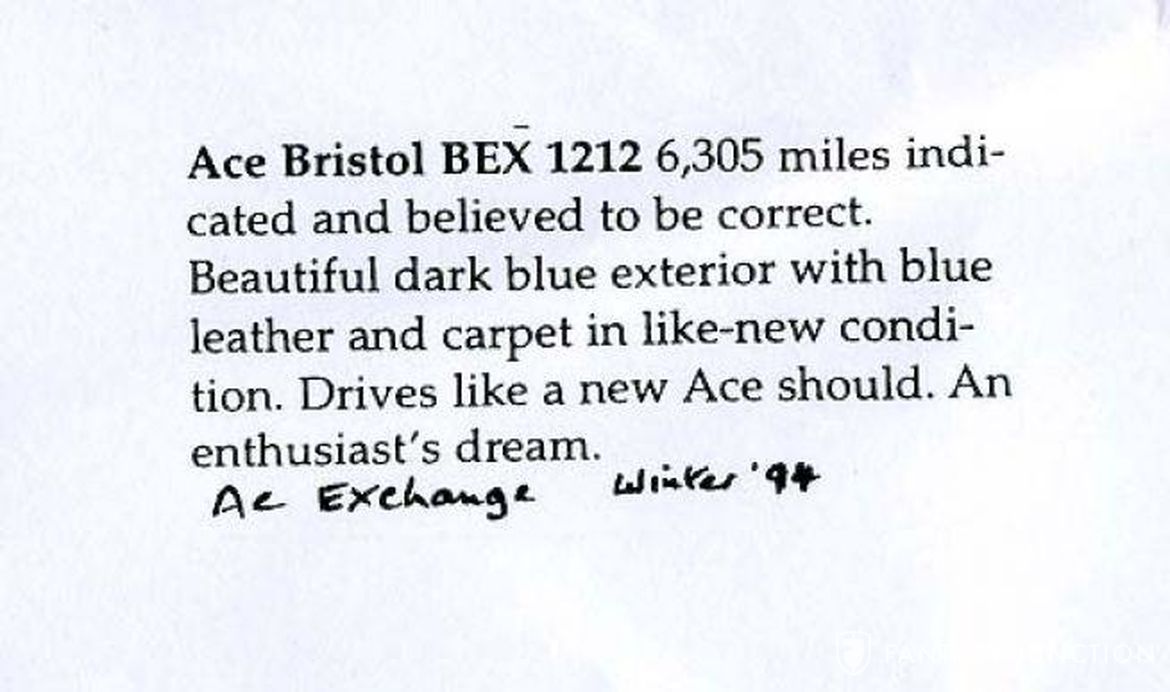 Ace Bristol BEX 1212 6,305 miles indi-
cated and believed to be correct.
Beautiful dark blue exterior with blue
leather and carpet in like-new condi-
tion. Drives like a new Ace should. An
enthusiast's dream.
Ac Exchange Winter '94